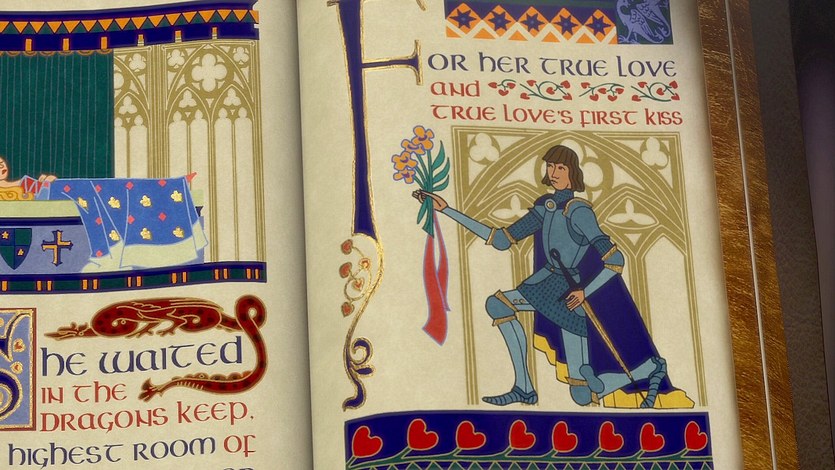 She waited
in the
dragons keep.
highest room of
For her true love
and
true love's first kiss